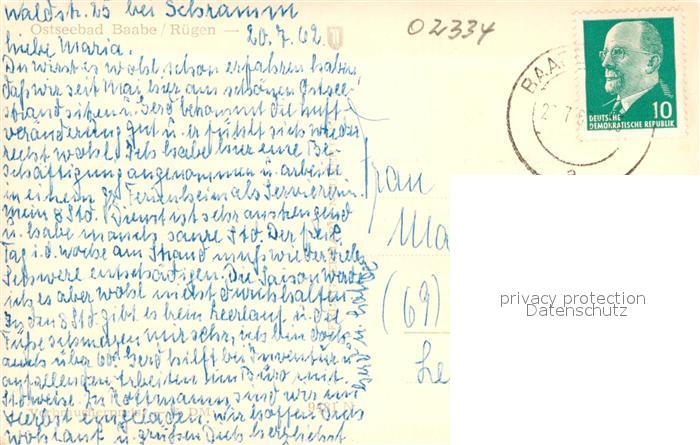 Waldstr. 25 bei Schramm
Ostseebad Baabe / Rügen
20.7.62
02334
Liebe Maria.
Du wirst es wohl schon erfahren haben,
daß wir seit Mai hier am schönen Ostsee-
strand sitzen u. Gerd bekommt die Luft-
veränderung gut u. er fühlt sich wieder
recht wohl. Ich habe hier eine Be-
schäftigung angenommen u. arbeite
in einem Ferienheim als Serviererin.
Mein 8 Std. Dienst ist sehr anstrengend
u. habe manch saure Std. Der freie
Tag i. d. Woche am Strand muß wieder vieles
Schwere entschädigen. Die Saison werde
ich es aber wohl durchhalten.
In den 8 Std. gibt es kein Leerlauf u. die
Füße schmerzen mir sehr, ich bin doch
auch über 60. Gerd hilft bei Inventur u.
anfallenden Arbeiten im Büro mit.
sind wir im
Herbst eingeladen. Wir hoffen Dich
wohlauf u. grüßen Dich herzlichst
Frau
Ma
(69)
BAAB
DEUTSCHE
DEMOKRATISCHE REPUBLIK
10
privacy protection
Datenschutz